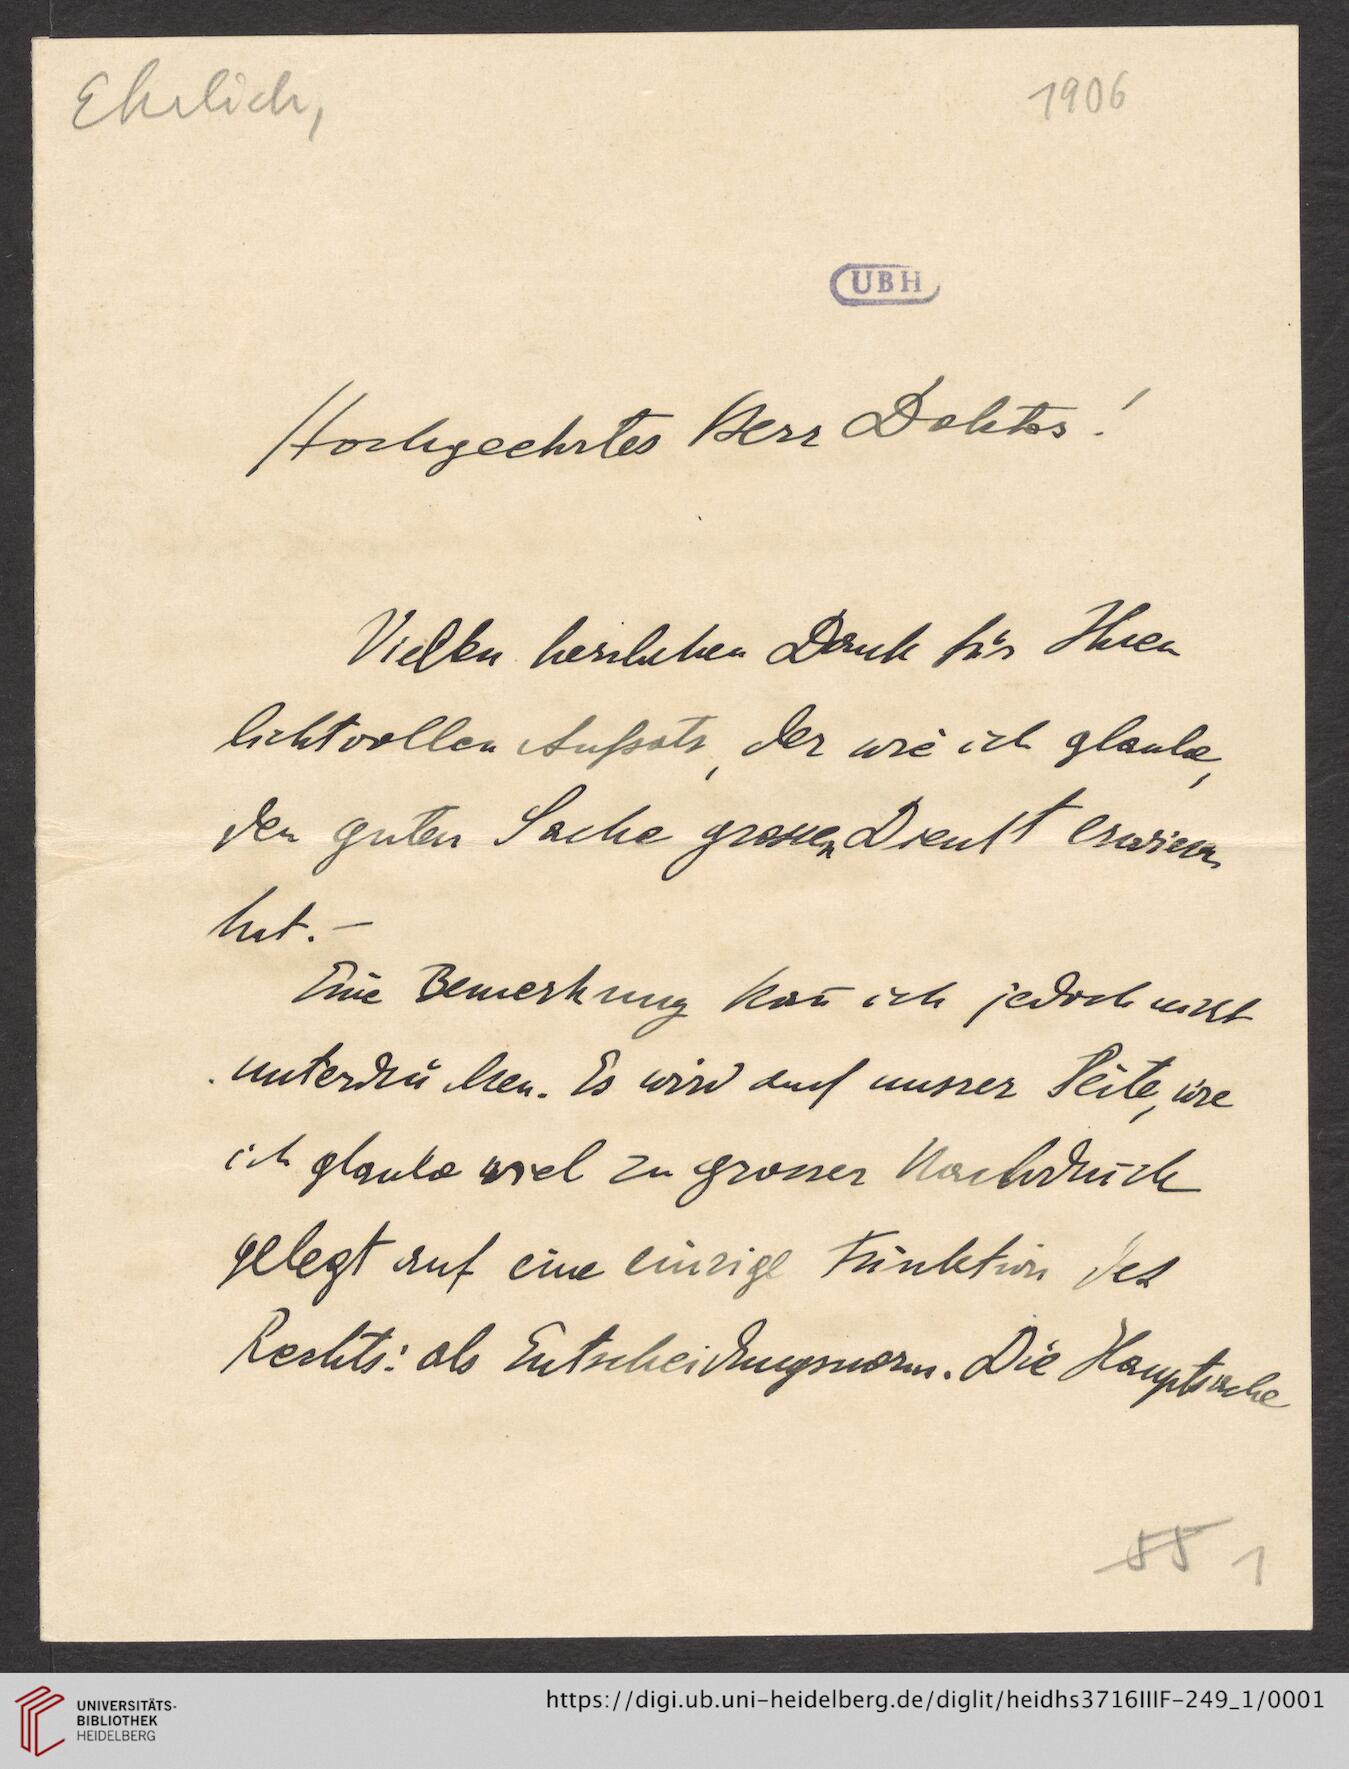 Ehrlich,
1906
UBH
Hochgeehrter Herr Doktor!
Vielen herzlichen Dank für Ihren
lichtvollen Aufsatz, der wie ich glaube,
der guten Sache grossen Dienst erwiesen
hat. —
Eine Bemerkung kan̄ ich jedoch nicht
unterdrücken. Es wird auf unsrer Seite, wie
ich glaube viel zu grosser Nachdruck
gelegt auf eine einzige Funktion des
Rechts: als Entscheidungsnorm. Die Hauptsache
55 1
UNIVERSITÄTS-
BIBLIOTHEK
HEIDELBERG
https://digi.ub.uni-heidelberg.de/diglit/heidhs3716IIIF-249_1/0001